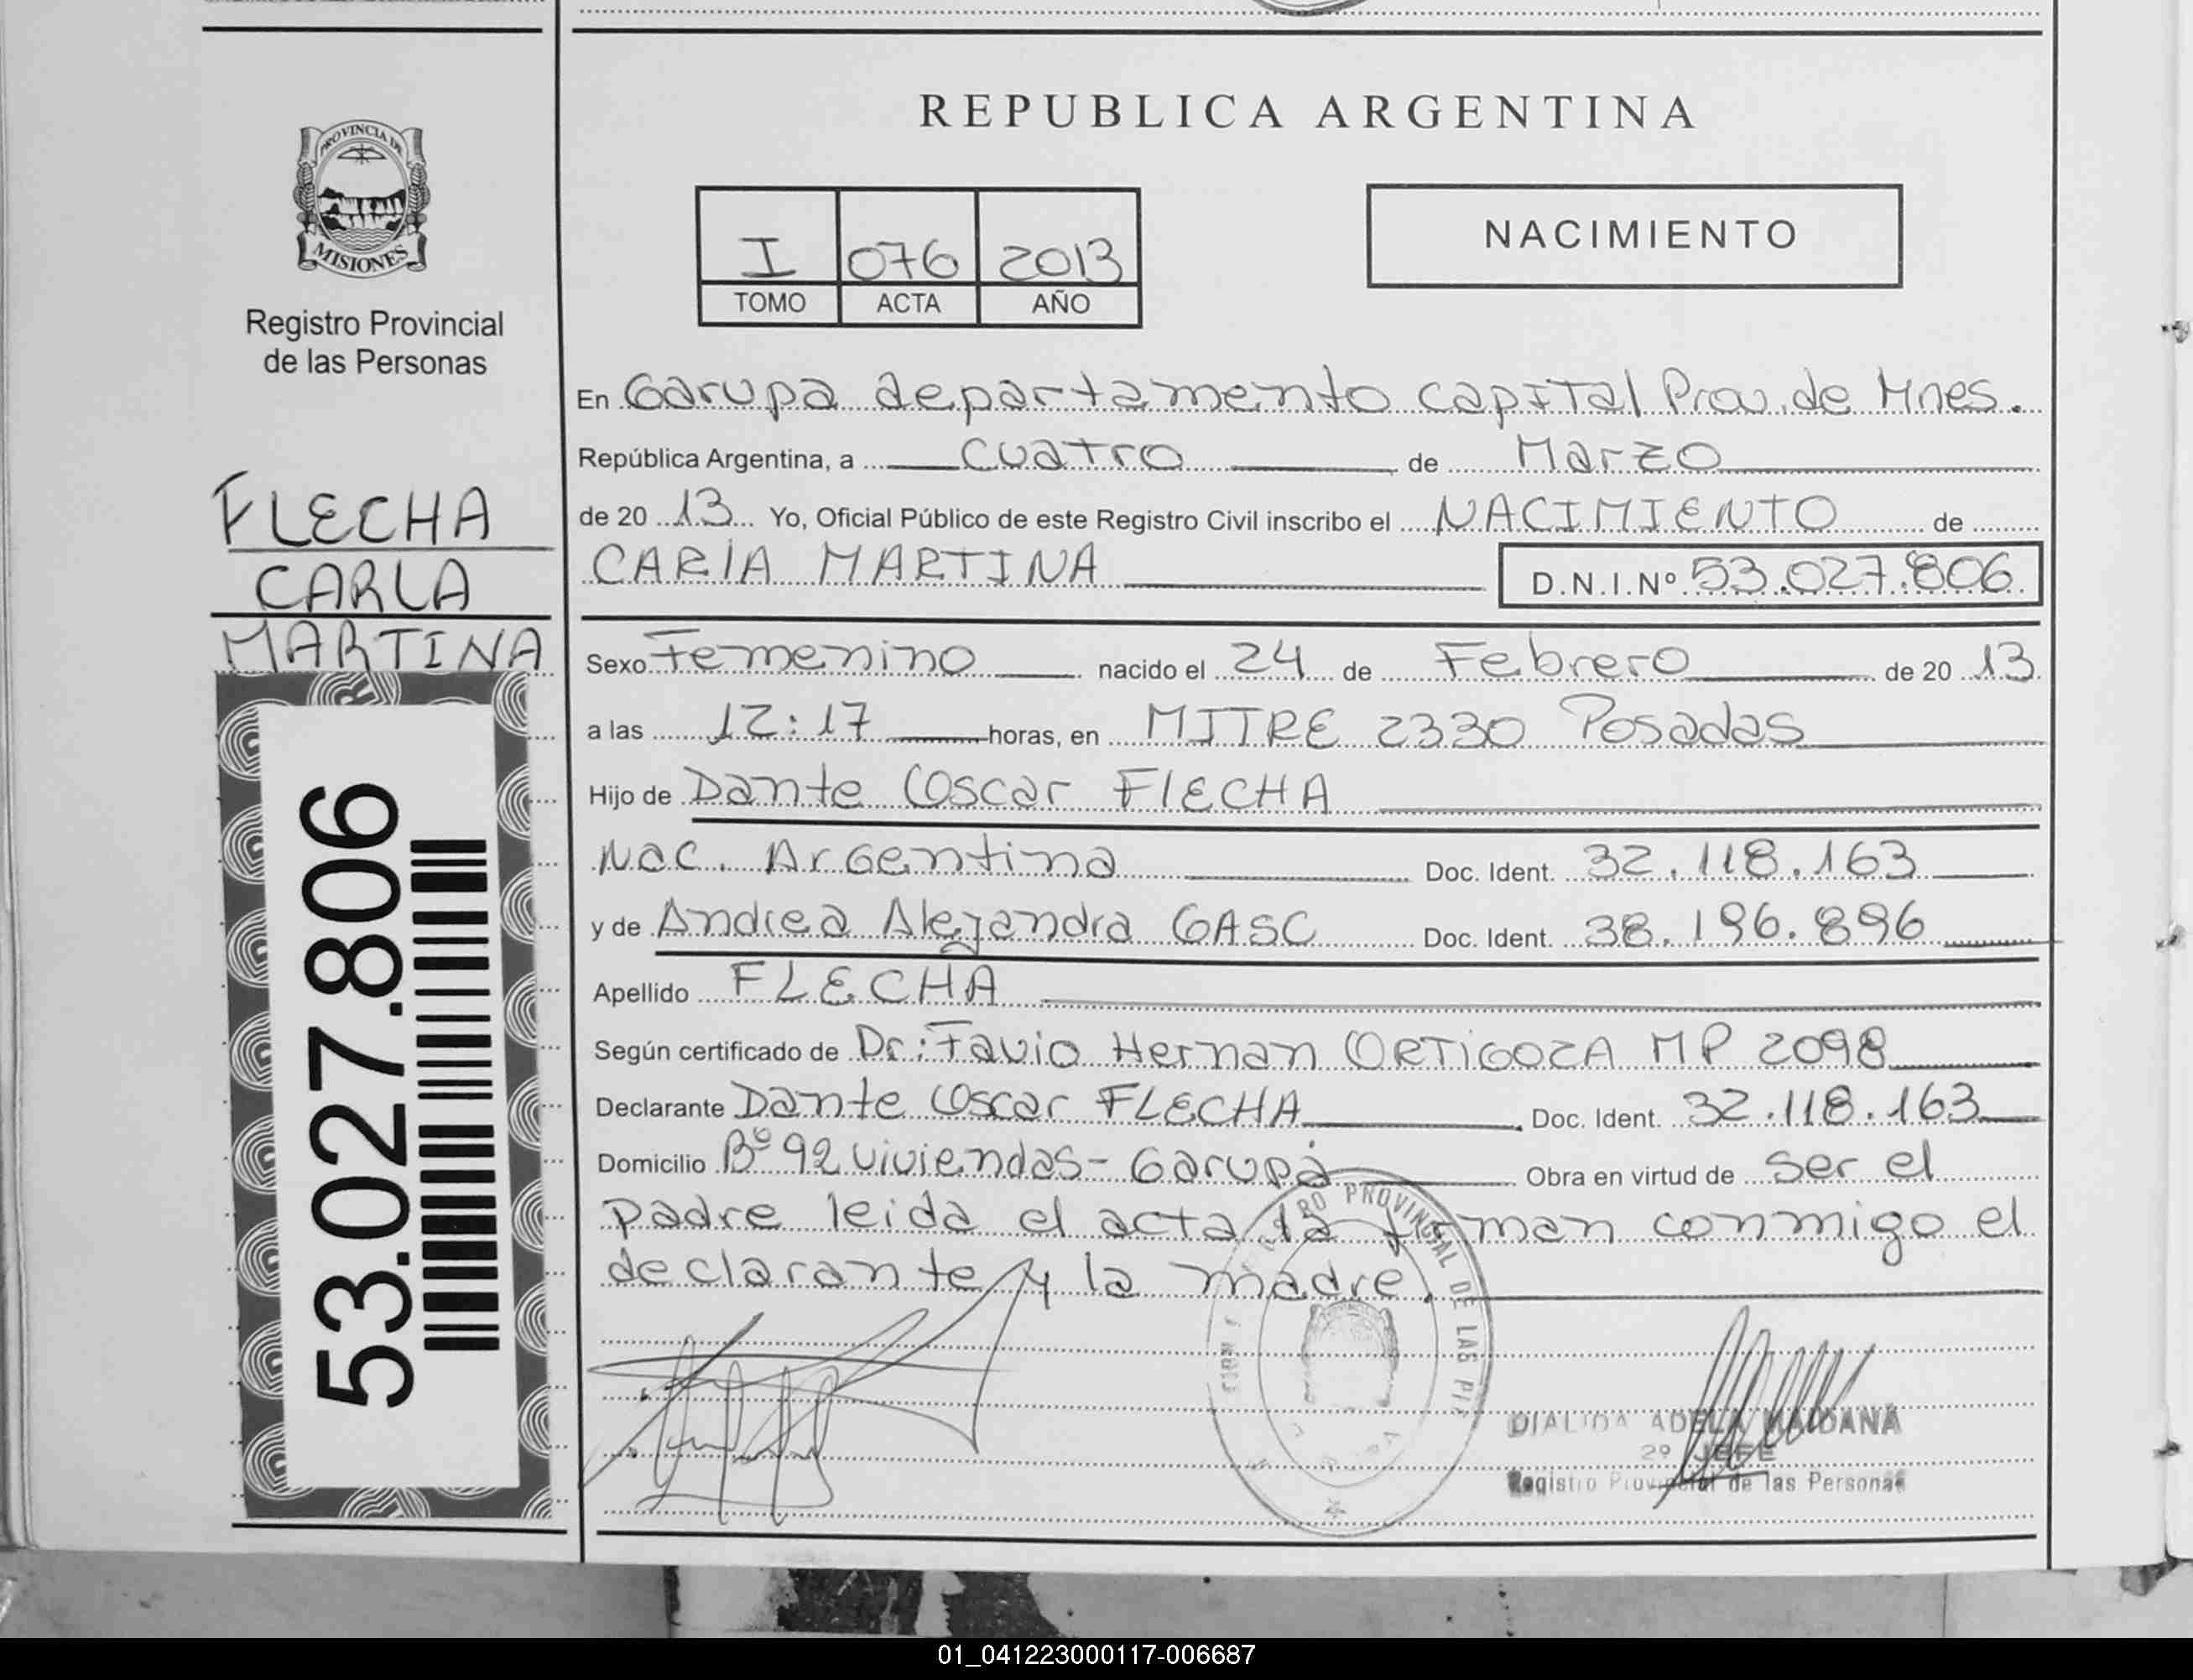 REPUBLICA ARGENTINA
PROVINCIA DE
MISIONES
Registro Provincial
de las Personas
FLECHA
CARLA
MARTINA
53.027.806
I 076 2013
TOMO ACTA AÑO
NACIMIENTO
En Garupa departamento capITal Prov. de Mnes.
República Argentina, a cuatro de Marzo
de 20 13 Yo, Oficial Público de este Registro Civil inscribo el NACIMIENTO de
CARlA MARTINA D.N.I.Nº 53.027.806
Sexo Femenino nacido el 24 de Febrero de 20 13
a las 12:17 horas, en MITRE 2330 Posadas
Hijo de Dante Oscar FlECHA
Nac. Argentina Doc. Ident. 32.118.163
y de Andrea Alejandra GASC Doc. Ident. 38.196.896
Apellido FLECHA
Según certificado de Dr: Favio Hernan ORTIGOZA MP 2098
Declarante Dante Oscar FLECHA Doc. Ident. 32.118.163
Domicilio Bº 92 viviendas - Garupá Obra en virtud de ser el
padre leida el acta la firman conmigo el
declarante y la madre.
PROVINCIAL DE LAS
ADELA MAIDANA
2º JEFE
Registro Provincial de las Personas
01_041223000117-006687